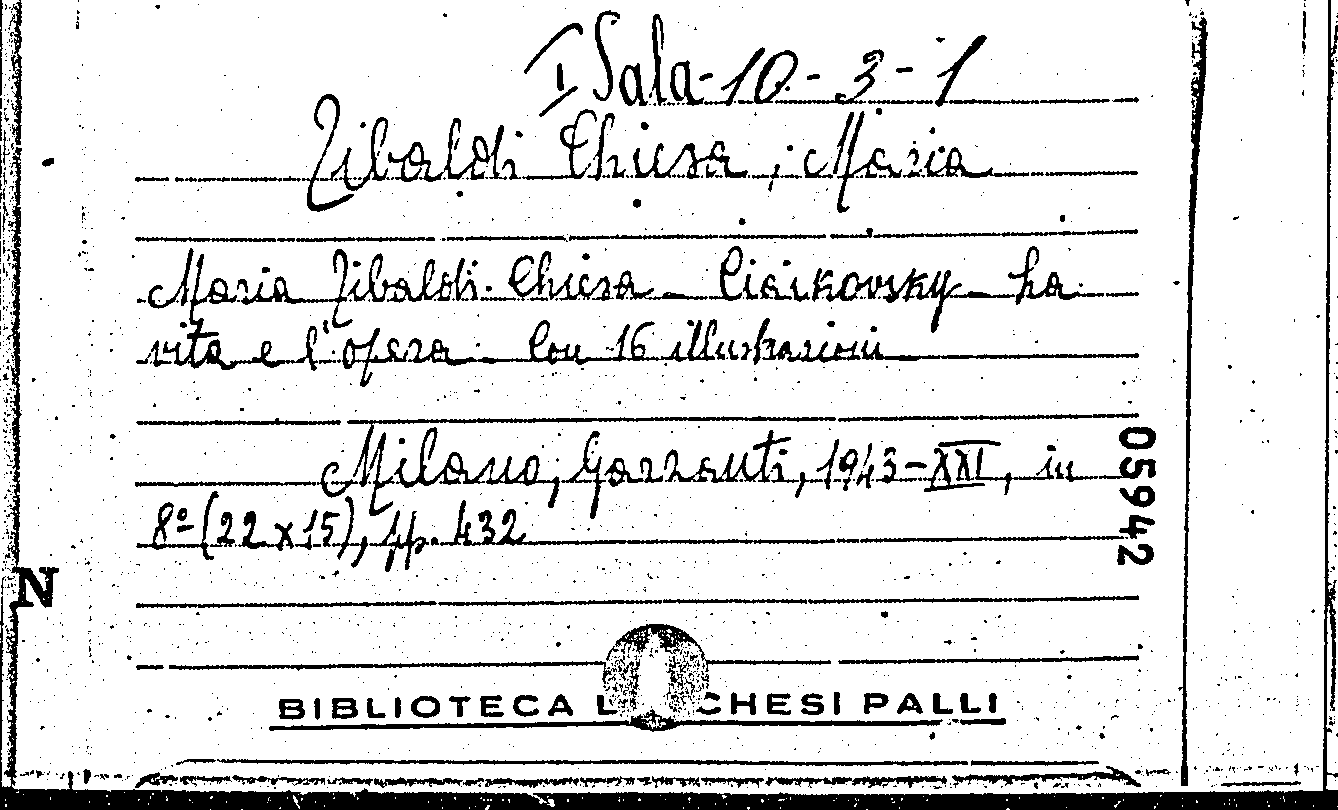 I Sala-10-3-1
Tibaldi Chiesa, Maria
Maria Tibaldi-Chiesa - Ciaikovsky - La
vita e l'opera - Con 16 illustrazioni -
Milano, Garzanti, 1943-XXI, in
8º (22 x 15), pp. 432
05942
N
BIBLIOTECA L CHESI PALLI